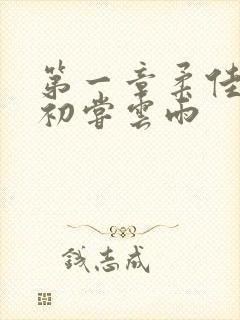 第一章柔佳
初尝雲雨
钱志成